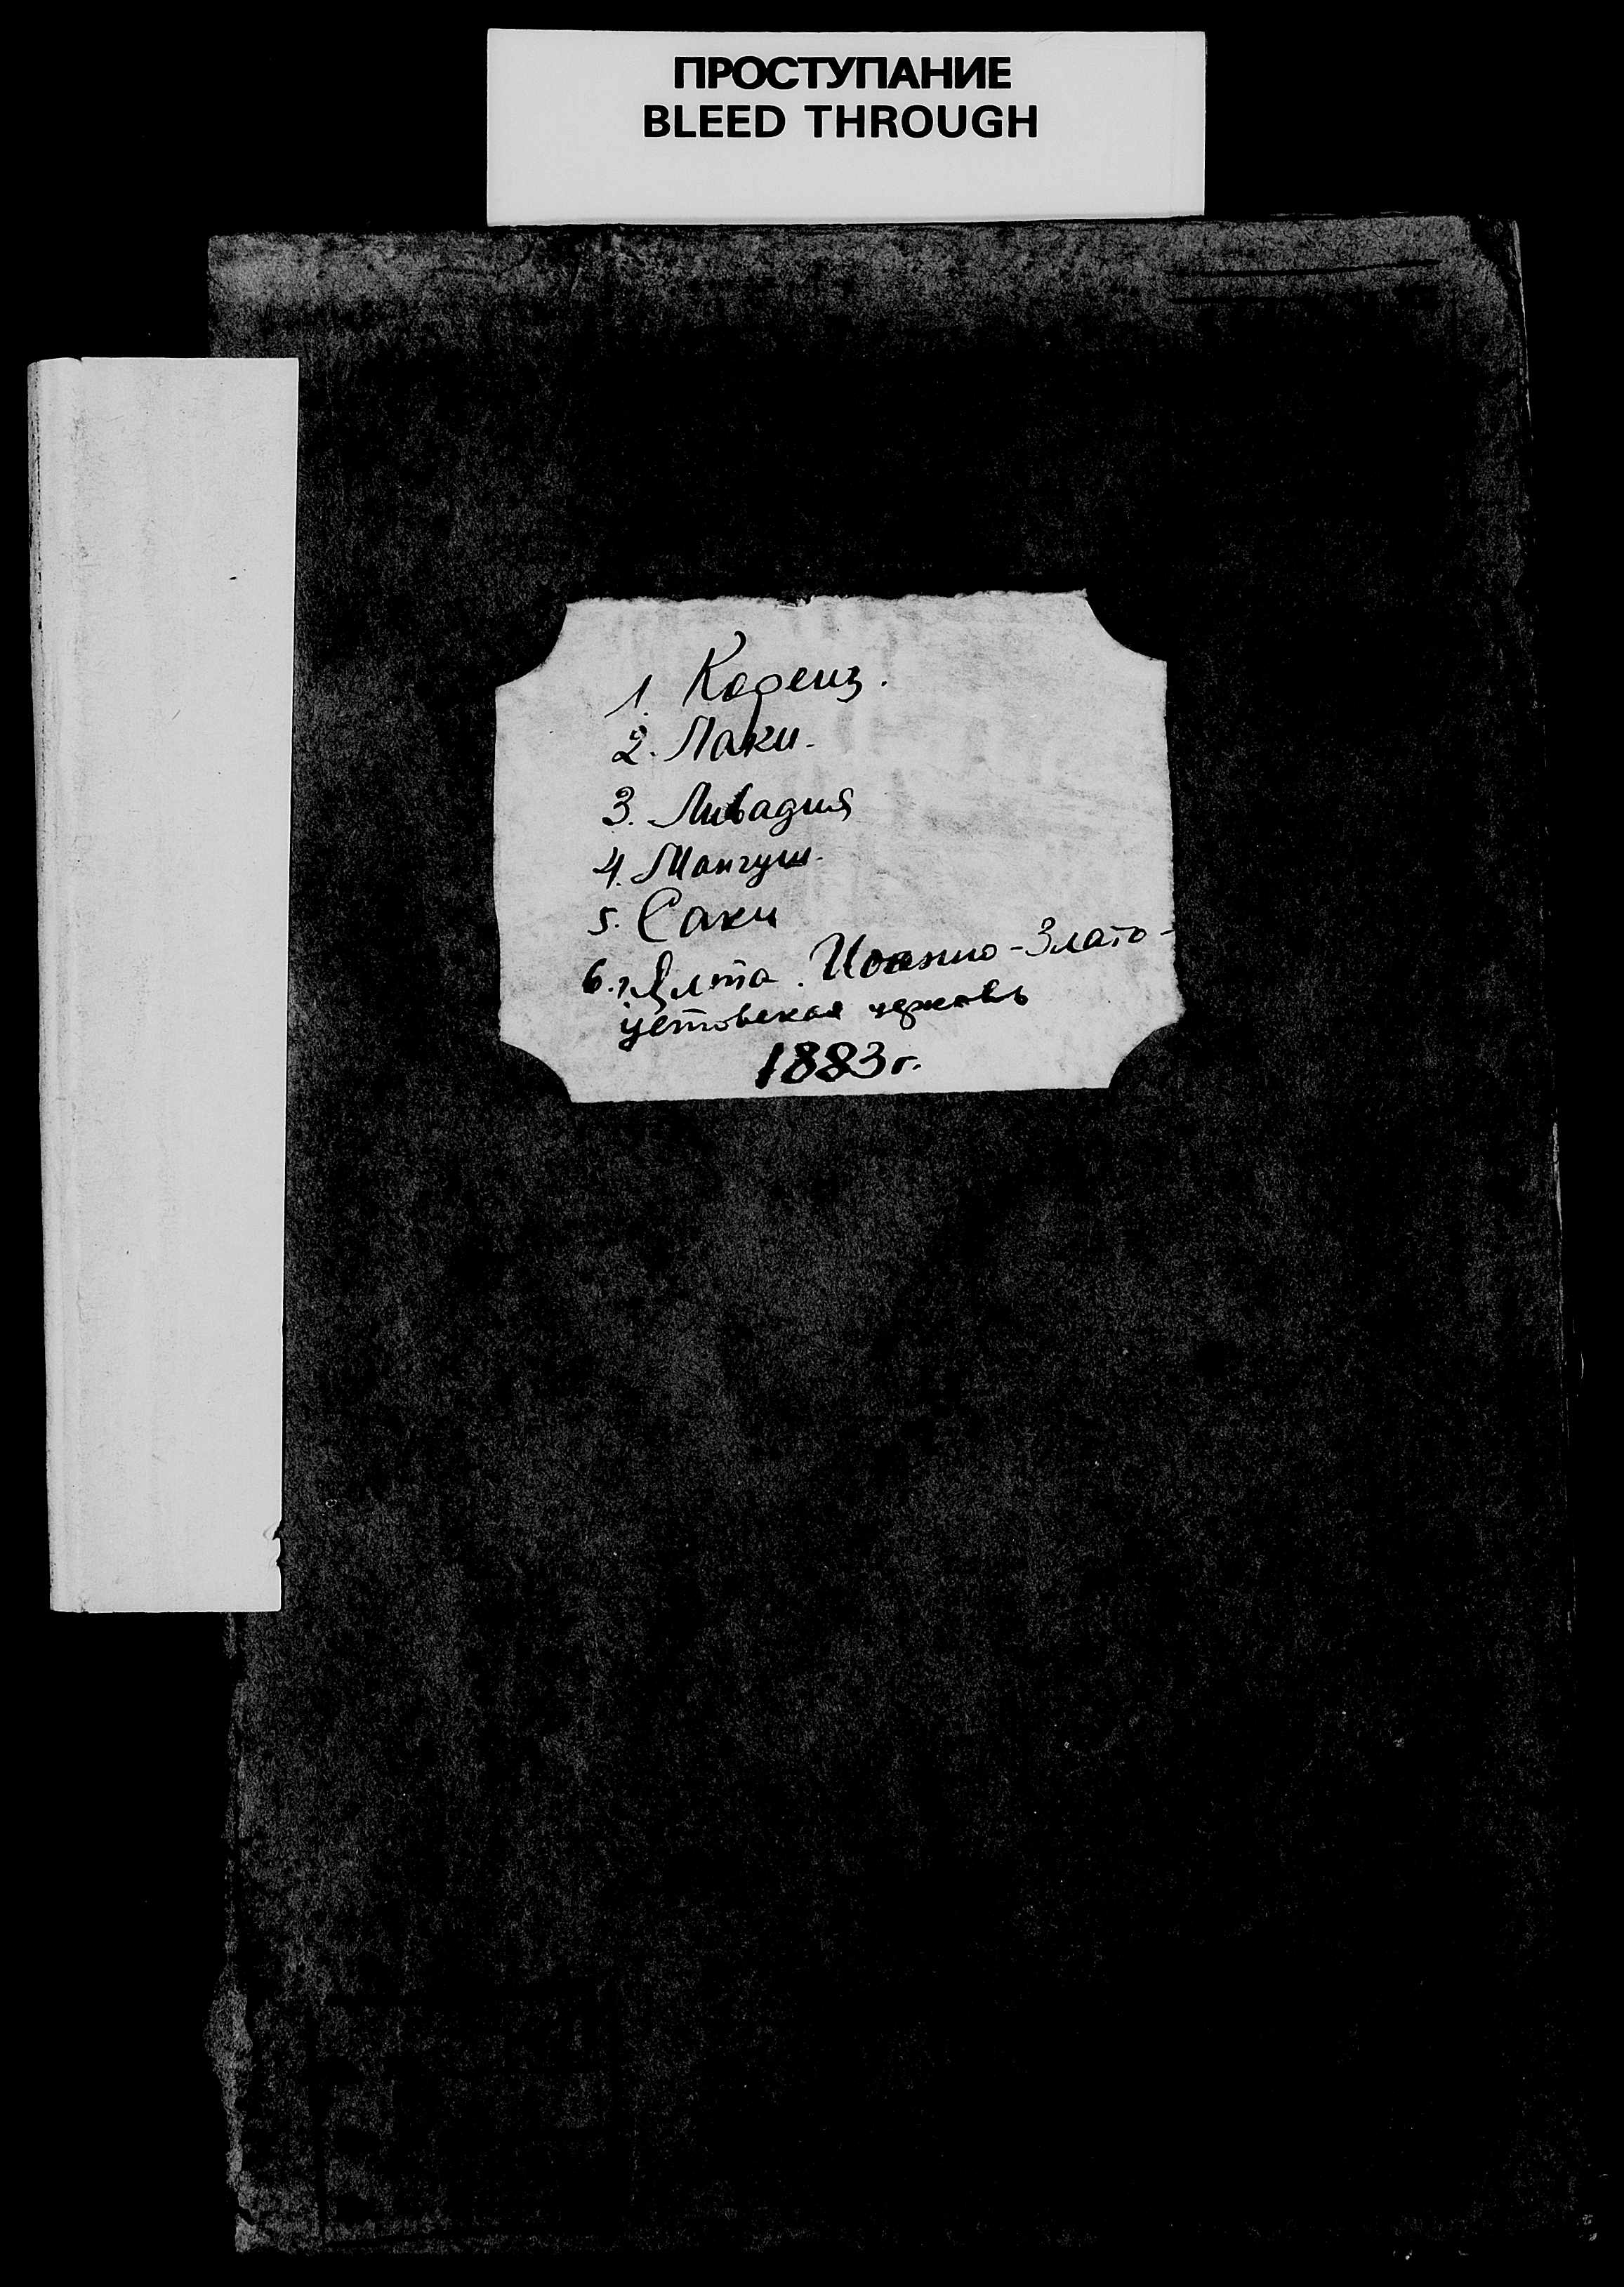 ПРОСТУПАНИЕ
BLEED THROUGH
1. Кореиз.
2. Лаки.
3. Ливадия
4. Мангуш.
5. Саки
6. г. Ялта. Иоанно-Злато-
устовская церковь
1883 г.